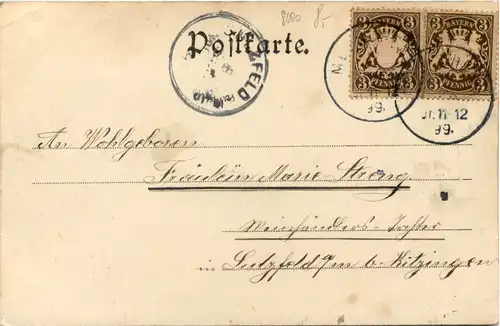 8000 8,-
Postkarte.
3 BAYERN 3 3 BAYERN 3
3 PFENNIG 3 3 PFENNIG 3
FELD
11-12
99.
11-12
99.
An Wohlgeboren
Fräulein Marie Streng
Weinhändlers-Tochter
in Sulzfeld a/m b. Kitzingen